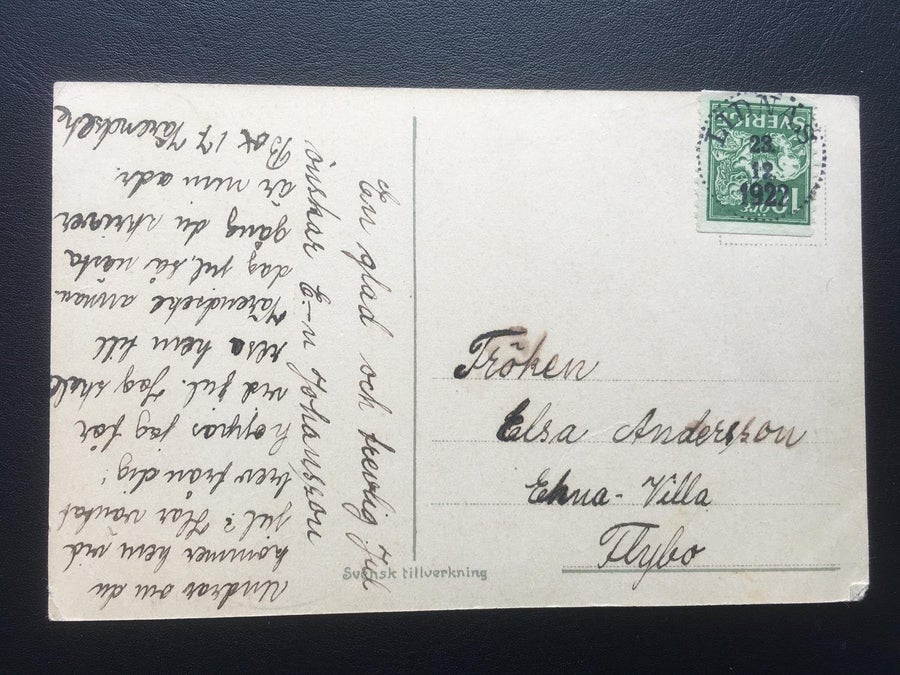 En glad och trevlig Jul
önskar E-n Johansson
Undrar om du
kommer hem vid
jul? Har väntat
brev från dig!
hoppas jag får
vid jul. Jag skall
resa hem till
annan-
dag jul, så nästa
gång du skriver
är min adr.
Box 17
SVERIGE
10 ÖRE
23.
12.
1922
Fröken
Elsa Andersson
Ekna-Villa
Flybo
Svensk tillverkning